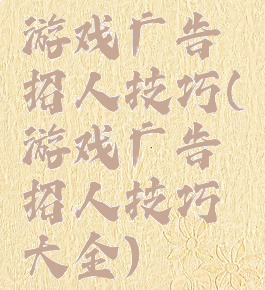 游戏广告
招人技巧(
游戏广告
招人技巧
大全)